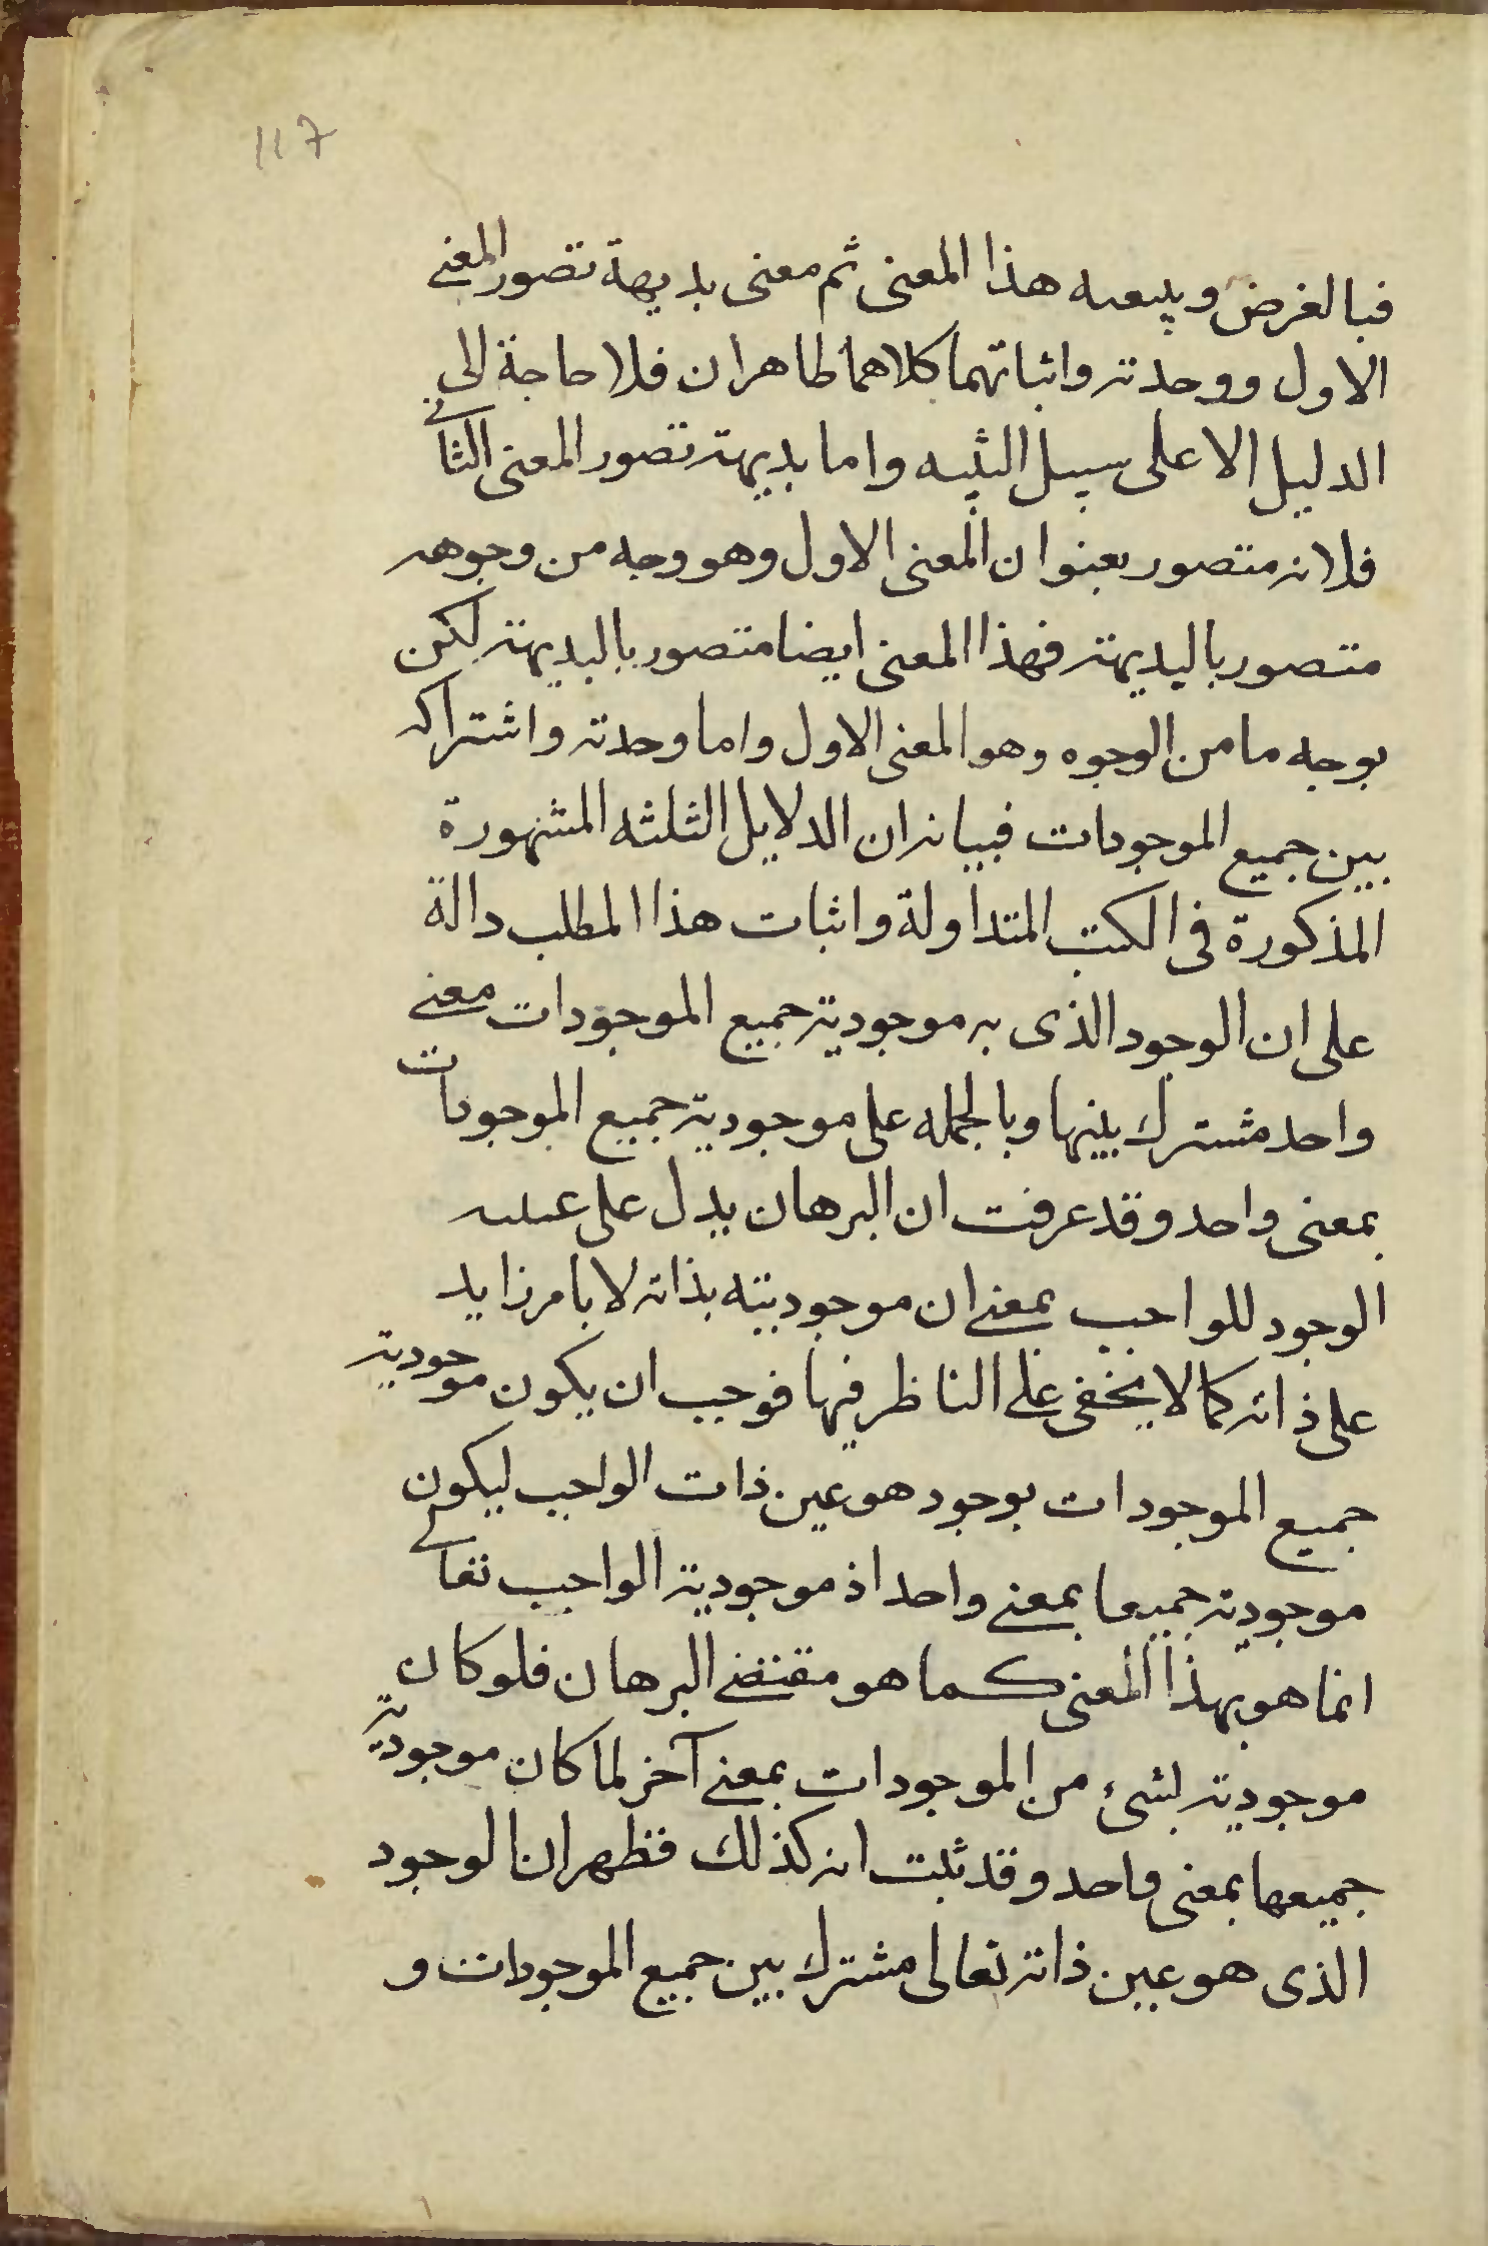 117
فبالغرض ويتبعه هذا المعنى ثم معنى بديهة تصور المعنى
الاول ووحدته واثباتهما كلاهما ظاهران فلا حاجة الى
الدليل الا على سبيل التنبيه واما بديهته تصور المعنى الثانى
فلانه متصور بعنوان المعنى الاول وهو وجه من وجوهه
متصور بالبديهته فهذا المعنى ايضا متصور بالبديهته لكن
بوجه ما من الوجوه وهو المعنى الاول واما وحدته واشتراكه
بين جميع الموجودات فبيانه ان الدلايل الثلثه المشهورة
المذكورة فى الكتب المتداولة واثبات هذا المطلب دالة
على ان الوجود الذى به موجودية جميع الموجودات معنى
واحد مشترك بينها وبالجمله على موجودية جميع الموجودات
بمعنى واحد وقد عرفت ان البرهان يدل على عينيه
الوجود للواجب بمعنى ان موجوديته بذاته لا بامر زايد
على ذاته كما لا يخفى على الناظر فيها فوجب ان يكون موجودية
جميع الموجودات بوجود هو عين ذات الواجب ليكون
موجودية جميعها بمعنى واحد اذ موجودية الواجب تعالى
انما هو بهذا المعنى كما هو مقتضى البرهان فلو كان
موجودية لشىء من الموجودات بمعنى آخر لما كان موجودية
جميعها بمعنى واحد وقد ثبت انه كذلك فظهر ان الوجود
الذى هو عين ذاته تعالى مشترك بين جميع الموجودات و